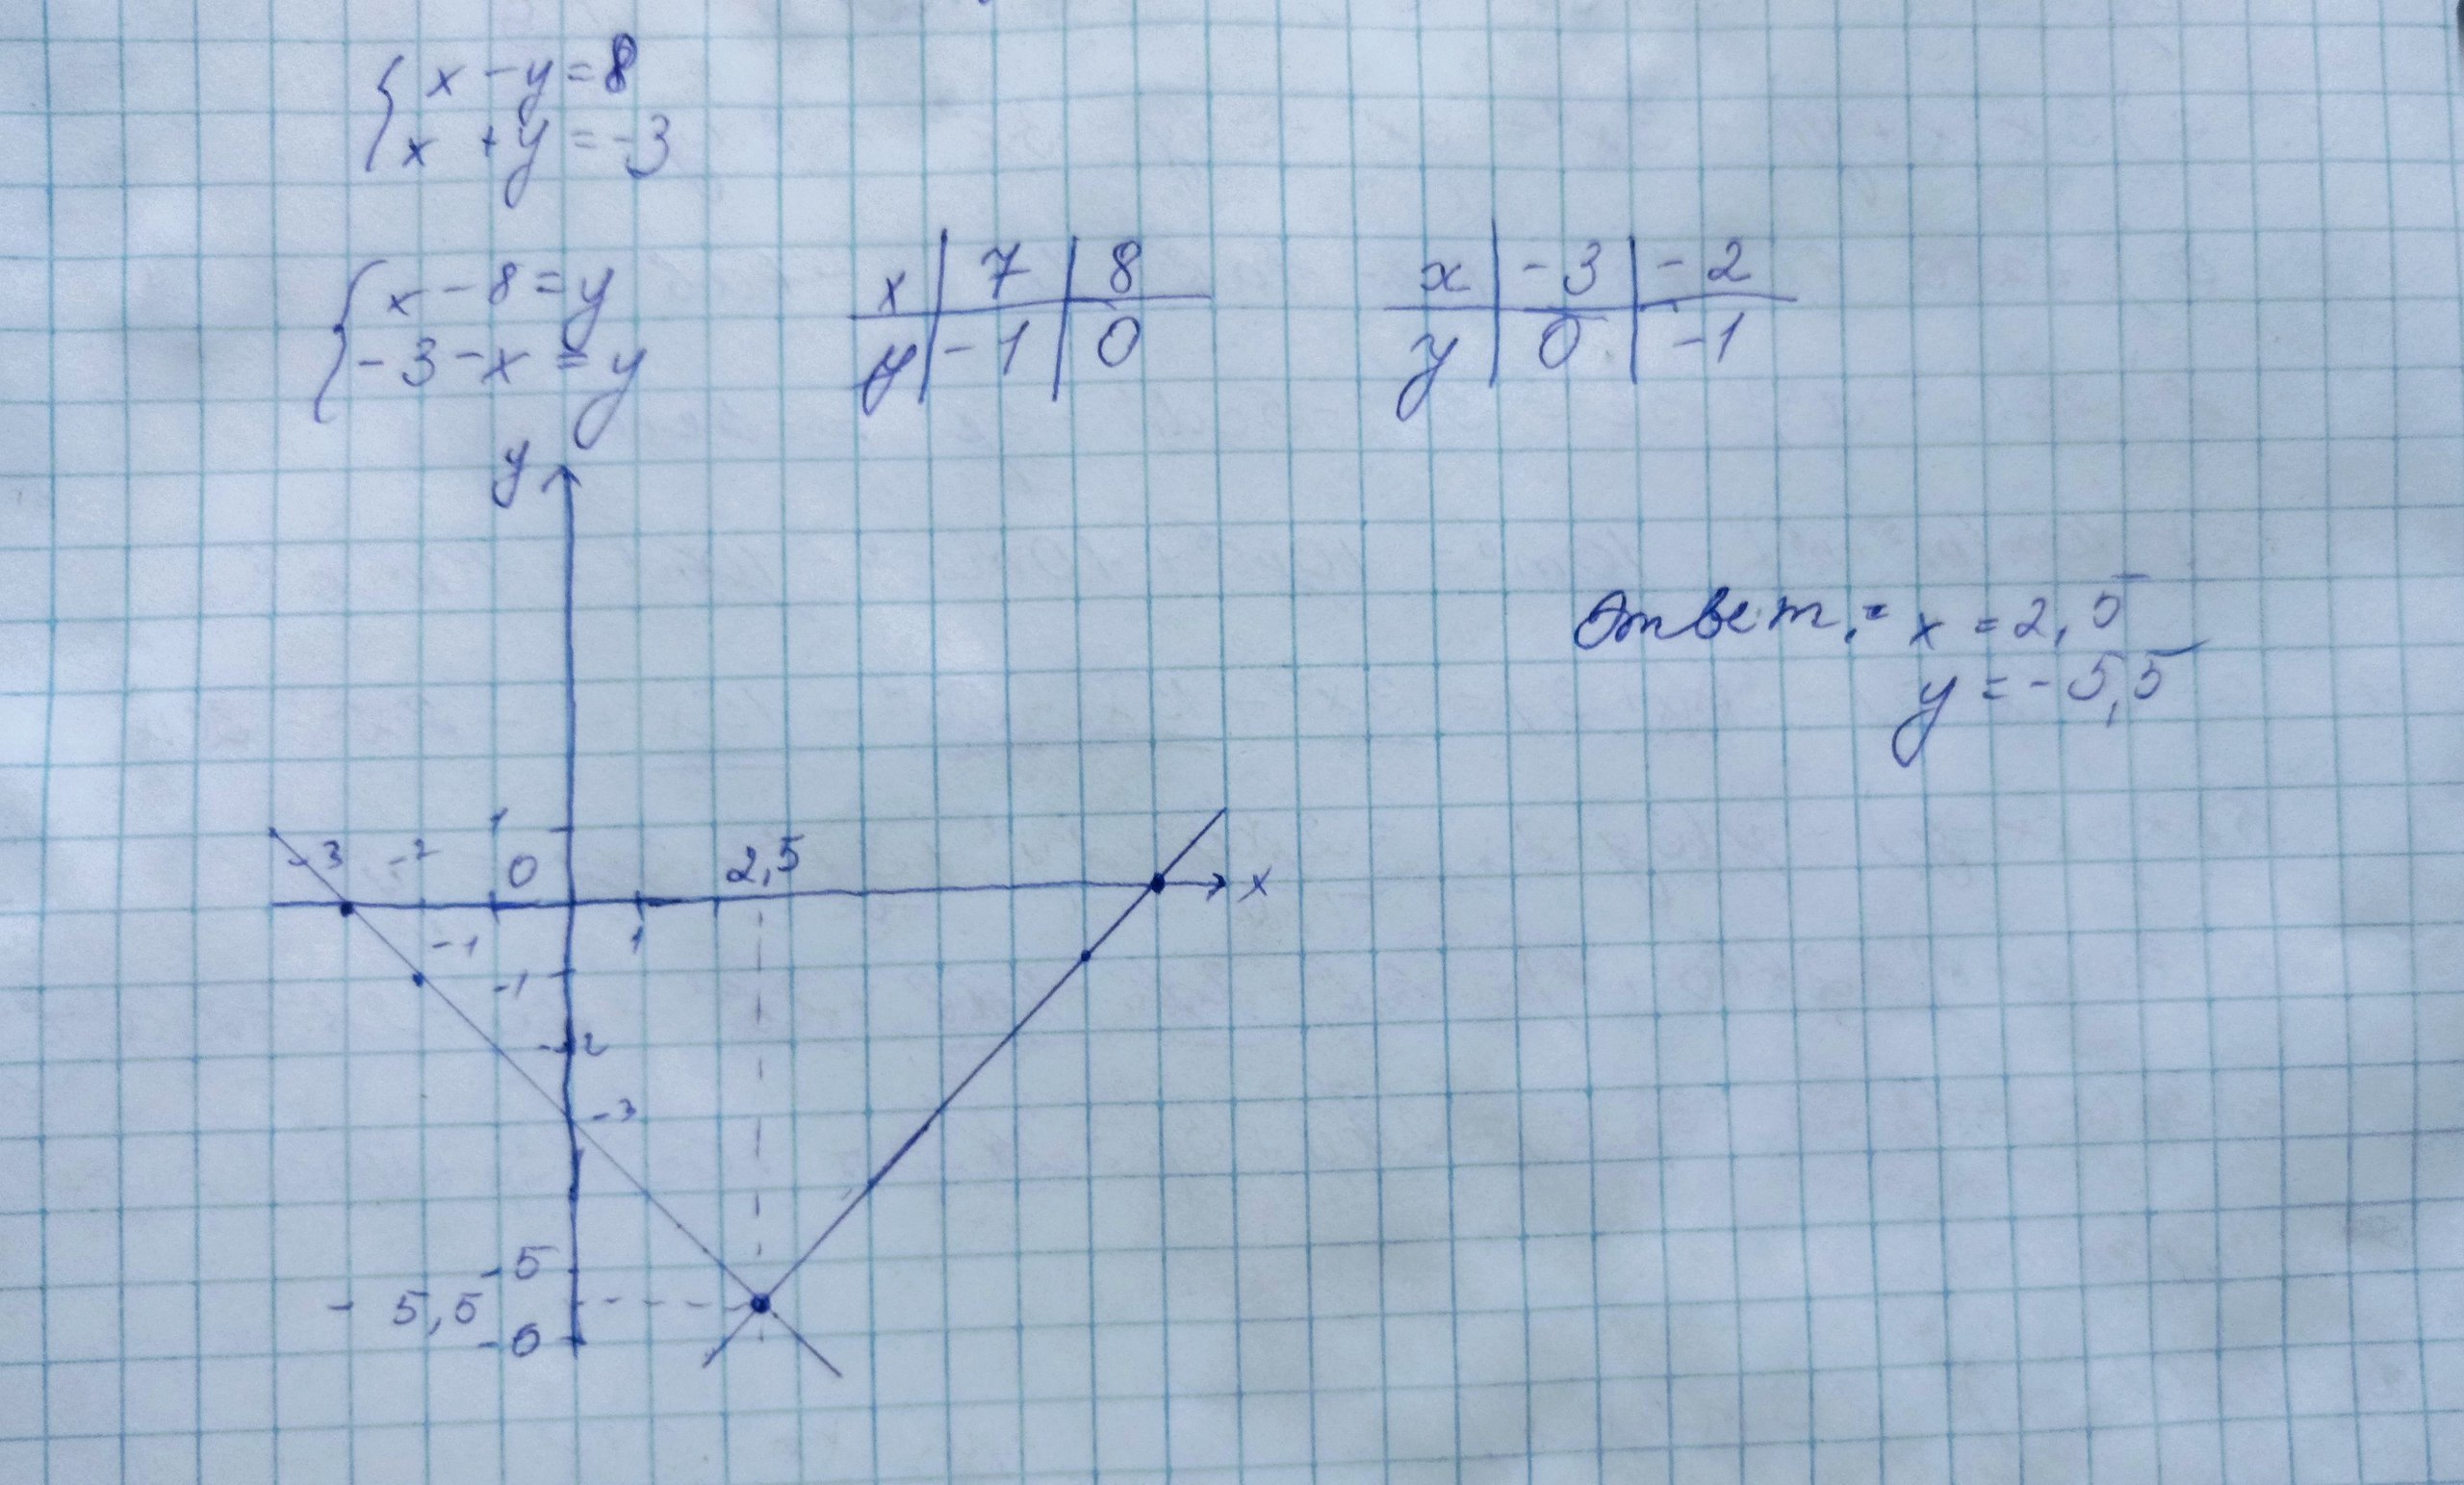 x - y = 8
x + y = -3
x - 8 = y
-3 - x = y
x | 7 | 8
y | -1 | 0
x | -3 | -2
y | 0 | -1
y
Ответ: x = 2,5
y = -5,5
1
-3 -2 0 2,5
x
-1 1
-1
-2
-3
-5
-5,5
-6